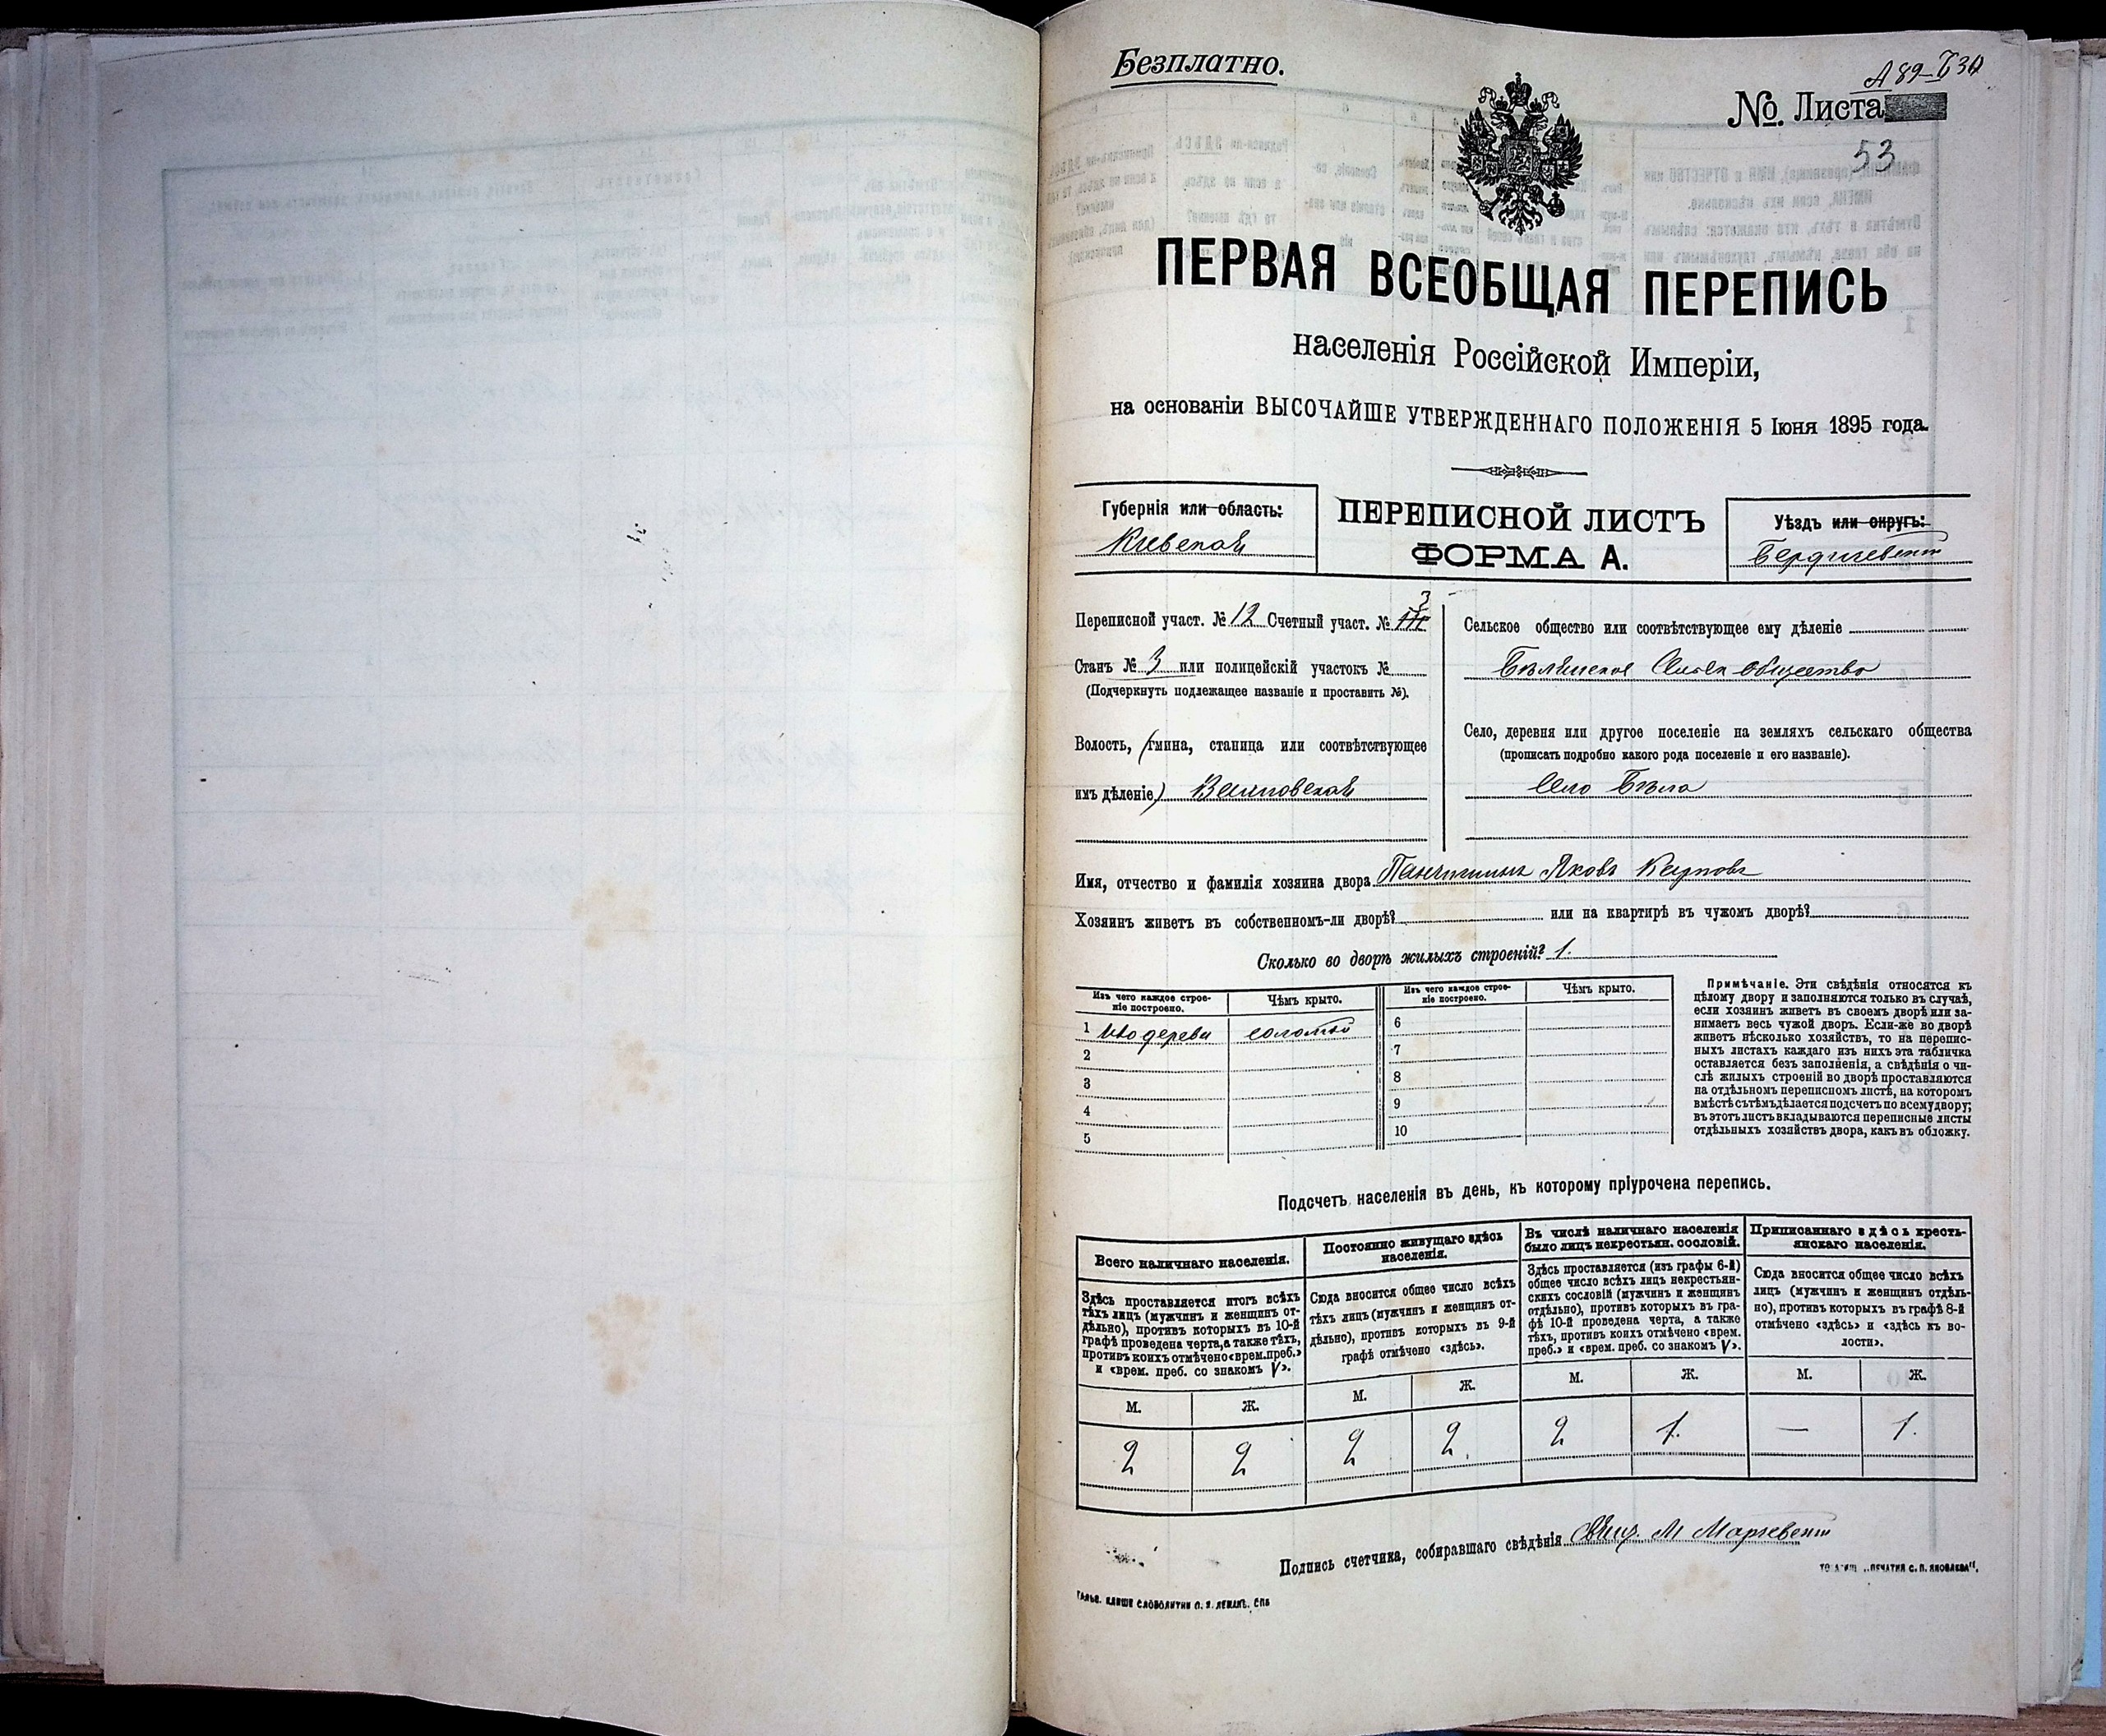 Безплатно.
А 89
№. Листа
53
ПЕРВАЯ ВСЕОБЩАЯ ПЕРЕПИСЬ
населенія Россійской Имперіи,
на основаніи ВЫСОЧАЙШЕ УТВЕРЖДЕННАГО ПОЛОЖЕНІЯ 5 Іюня 1895 года.
Губернія или область:
Кіевская
ПЕРЕПИСНОЙ ЛИСТЪ
ФОРМА А.
Уѣздъ или округъ:
Бердичевскій
Переписной участ. № 12 Счетный участ. № 3
Станъ № 3 или полицейскій участокъ №
(Подчеркнуть подлежащее названіе и проставить №).
Волость, (гмина, станица или соотвѣтствующее
имъ дѣленіе)
Сельское общество или соотвѣтствующее ему дѣленіе
Общество
Село, деревня или другое поселеніе на земляхъ сельскаго общества
(прописать подробно какого рода поселеніе и его названіе).
Село Бѣла
Имя, отчество и фамилія хозяина двора Яковъ
Хозяинъ живетъ въ собственномъ-ли дворѣ? или на квартирѣ въ чужомъ дворѣ?
Сколько во дворѣ жилыхъ строеній? 1.
Изъ чего каждое строе-
ніе построено.
Чѣмъ крыто.
1 изъ дерева соломой
2
3
4
5
Изъ чего каждое строе-
ніе построено.
Чѣмъ крыто.
6
7
8
9
10
Примѣчаніе. Эти свѣдѣнія относятся къ
цѣлому двору и заполняются только въ случаѣ,
если хозяинъ живетъ въ своемъ дворѣ или за-
нимаетъ весь чужой дворъ. Если-же во дворѣ
живетъ нѣсколько хозяйствъ, то на перепис-
ныхъ листахъ каждаго изъ нихъ эта табличка
оставляется безъ заполненія, а свѣдѣнія о чи-
слѣ жилыхъ строеній во дворѣ проставляются
на отдѣльномъ переписномъ листѣ, на которомъ
вмѣстѣ съ тѣмъ дѣлается подсчетъ по всему двору;
въ этотъ листъ вкладываются переписные листы
отдѣльныхъ хозяйствъ двора, какъ въ обложку.
Подсчетъ населенія въ день, къ которому пріурочена перепись.
Всего наличнаго населенія.
Здѣсь проставляется итогъ всѣхъ
тѣхъ лицъ (мужчинъ и женщинъ от-
дѣльно), противъ которыхъ въ 10-й
графѣ проведена черта, а также тѣхъ,
противъ коихъ отмѣчено «врем. преб.»
и «врем. преб. со знакомъ V».
М. Ж.
2 2
Постоянно живущаго здѣсь
населенія.
Сюда вносится общее число всѣхъ
тѣхъ лицъ (мужчинъ и женщинъ от-
дѣльно), противъ которыхъ въ 9-й
графѣ отмѣчено «здѣсь».
М. Ж.
2 2
Въ числѣ наличнаго населенія
было лицъ некрестьян. сословій.
Здѣсь проставляется (изъ графы 6-й)
общее число всѣхъ лицъ некрестьян-
скихъ сословій (мужчинъ и женщинъ
отдѣльно), противъ которыхъ въ гра-
фѣ 10-й проведена черта, а также
тѣхъ, противъ коихъ отмѣчено «врем.
преб.» и «врем. преб. со знакомъ V».
М. Ж.
2 1.
Приписаннаго здѣсь кресть-
янскаго населенія.
Сюда вносится общее число всѣхъ
лицъ (мужчинъ и женщинъ отдѣль-
но), противъ которыхъ въ графѣ 8-й
отмѣчено «здѣсь» и «здѣсь къ во-
лости».
М. Ж.
— 1.
Подпись счетчика, собиравшаго свѣдѣнія